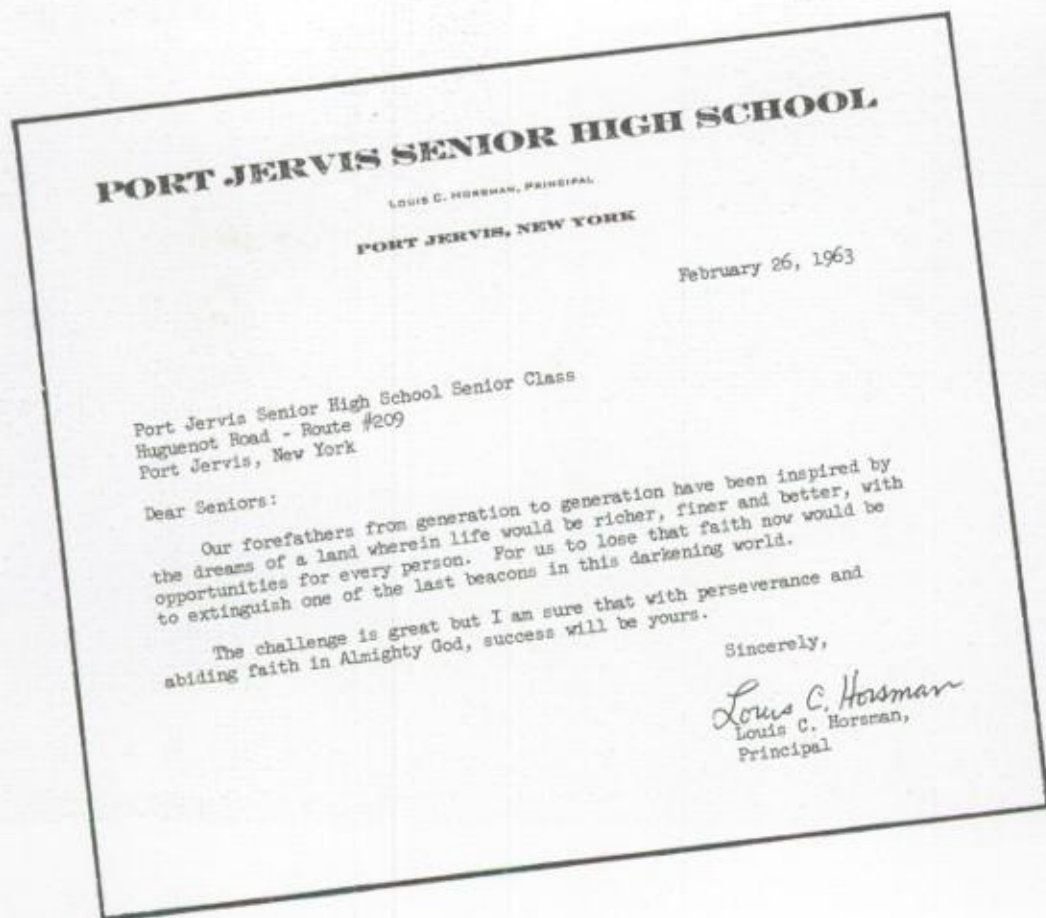 PORT JERVIS SENIOR HIGH SCHOOL
LOUIS C. HORSMAN, PRINCIPAL
PORT JERVIS, NEW YORK
February 26, 1963
Port Jervis Senior High School Senior Class
Huguenot Road - Route #209
Port Jervis, New York
Dear Seniors:
Our forefathers from generation to generation have been inspired by
the dreams of a land wherein life would be richer, finer and better, with
opportunities for every person. For us to lose that faith now would be
to extinguish one of the last beacons in this darkening world.
The challenge is great but I am sure that with perseverance and
abiding faith in Almighty God, success will be yours.
Sincerely,
Louis C. Horsman
Louis C. Horsman,
Principal